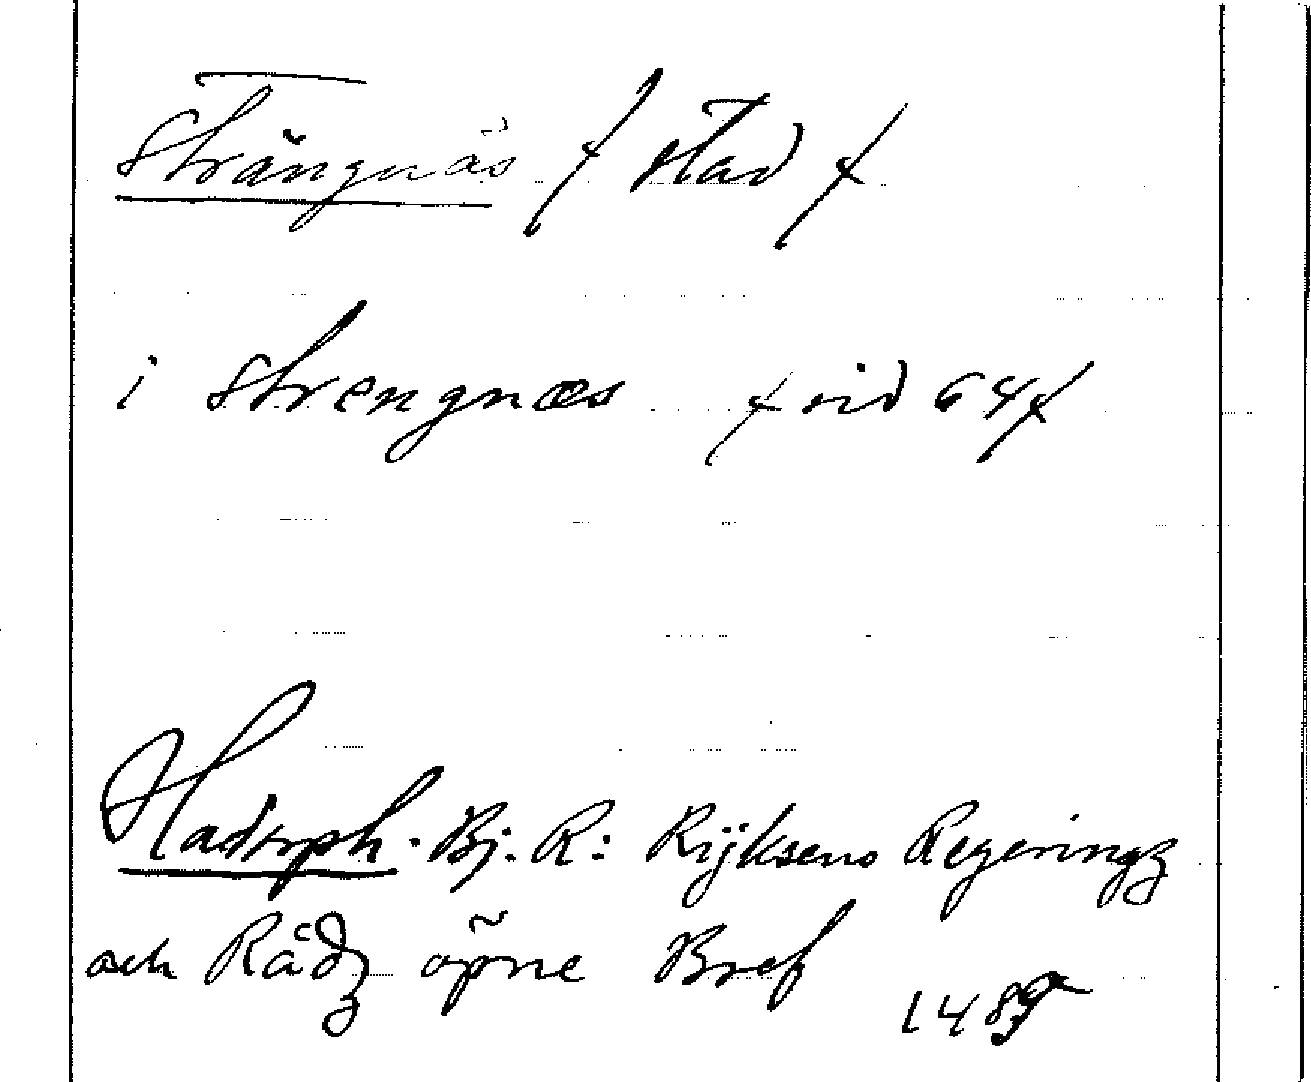 Strängnäs / stad /
i Strengnæs / sid 64 /
Hadorph. Bj. R: Rijksens Regeringz
och Rådz öpne Bref